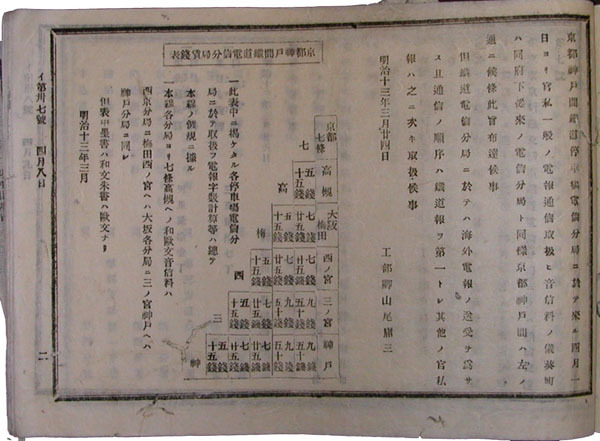 京都神戸間鐵道停車場電信分局ニ於テ來ル四月一
日ヨリ官私一般ノ電報通信取扱ヒ音信料ノ儀
ハ同府下從來ノ電信分局ト同樣京都神戸間ハ左ノ
通ニ候條此旨布達候事
但鐵道電信分局ニ於テハ海外電報ノ送受ヲ爲サ
ス且通信ノ順序ハ鐵道報ヲ第一トシ其他ノ官私
報ハ之ニ次キ取扱候事
明治十三年三月廿四日
工部卿山尾庸三
京都神戸間鐵道電信分局賃錢表
京都七條
七
高槻
五錢 十五錢
高
大阪梅田
七錢 廿五錢
五錢 十五錢
梅
西ノ宮
七錢 廿五錢
七錢 廿五錢
五錢 十五錢
西
三ノ宮
九錢 五十錢
九錢 五十錢
七錢 廿五錢
五錢 十五錢
三
神戸
九錢 五十錢
九錢 五十錢
七錢 廿五錢
五錢 十五錢
五錢 十五錢
神
一此表中ニ揭ケタル各停車場電信分
局ニ於テ取扱フ電報字數計算等ハ總テ
本線ノ例規ニ據ル
一本線各分局ヨリ七條高槻ヘノ和歐文音信料ハ
西京分局ニ梅田西ノ宮ヘハ大坂各分局ニ三ノ宮神戸ヘハ
神戸分局ニ同シ
但表中墨書ハ和文朱書ハ歐文ナリ
明治十三年三月
イ第卅七號 四月八日
二